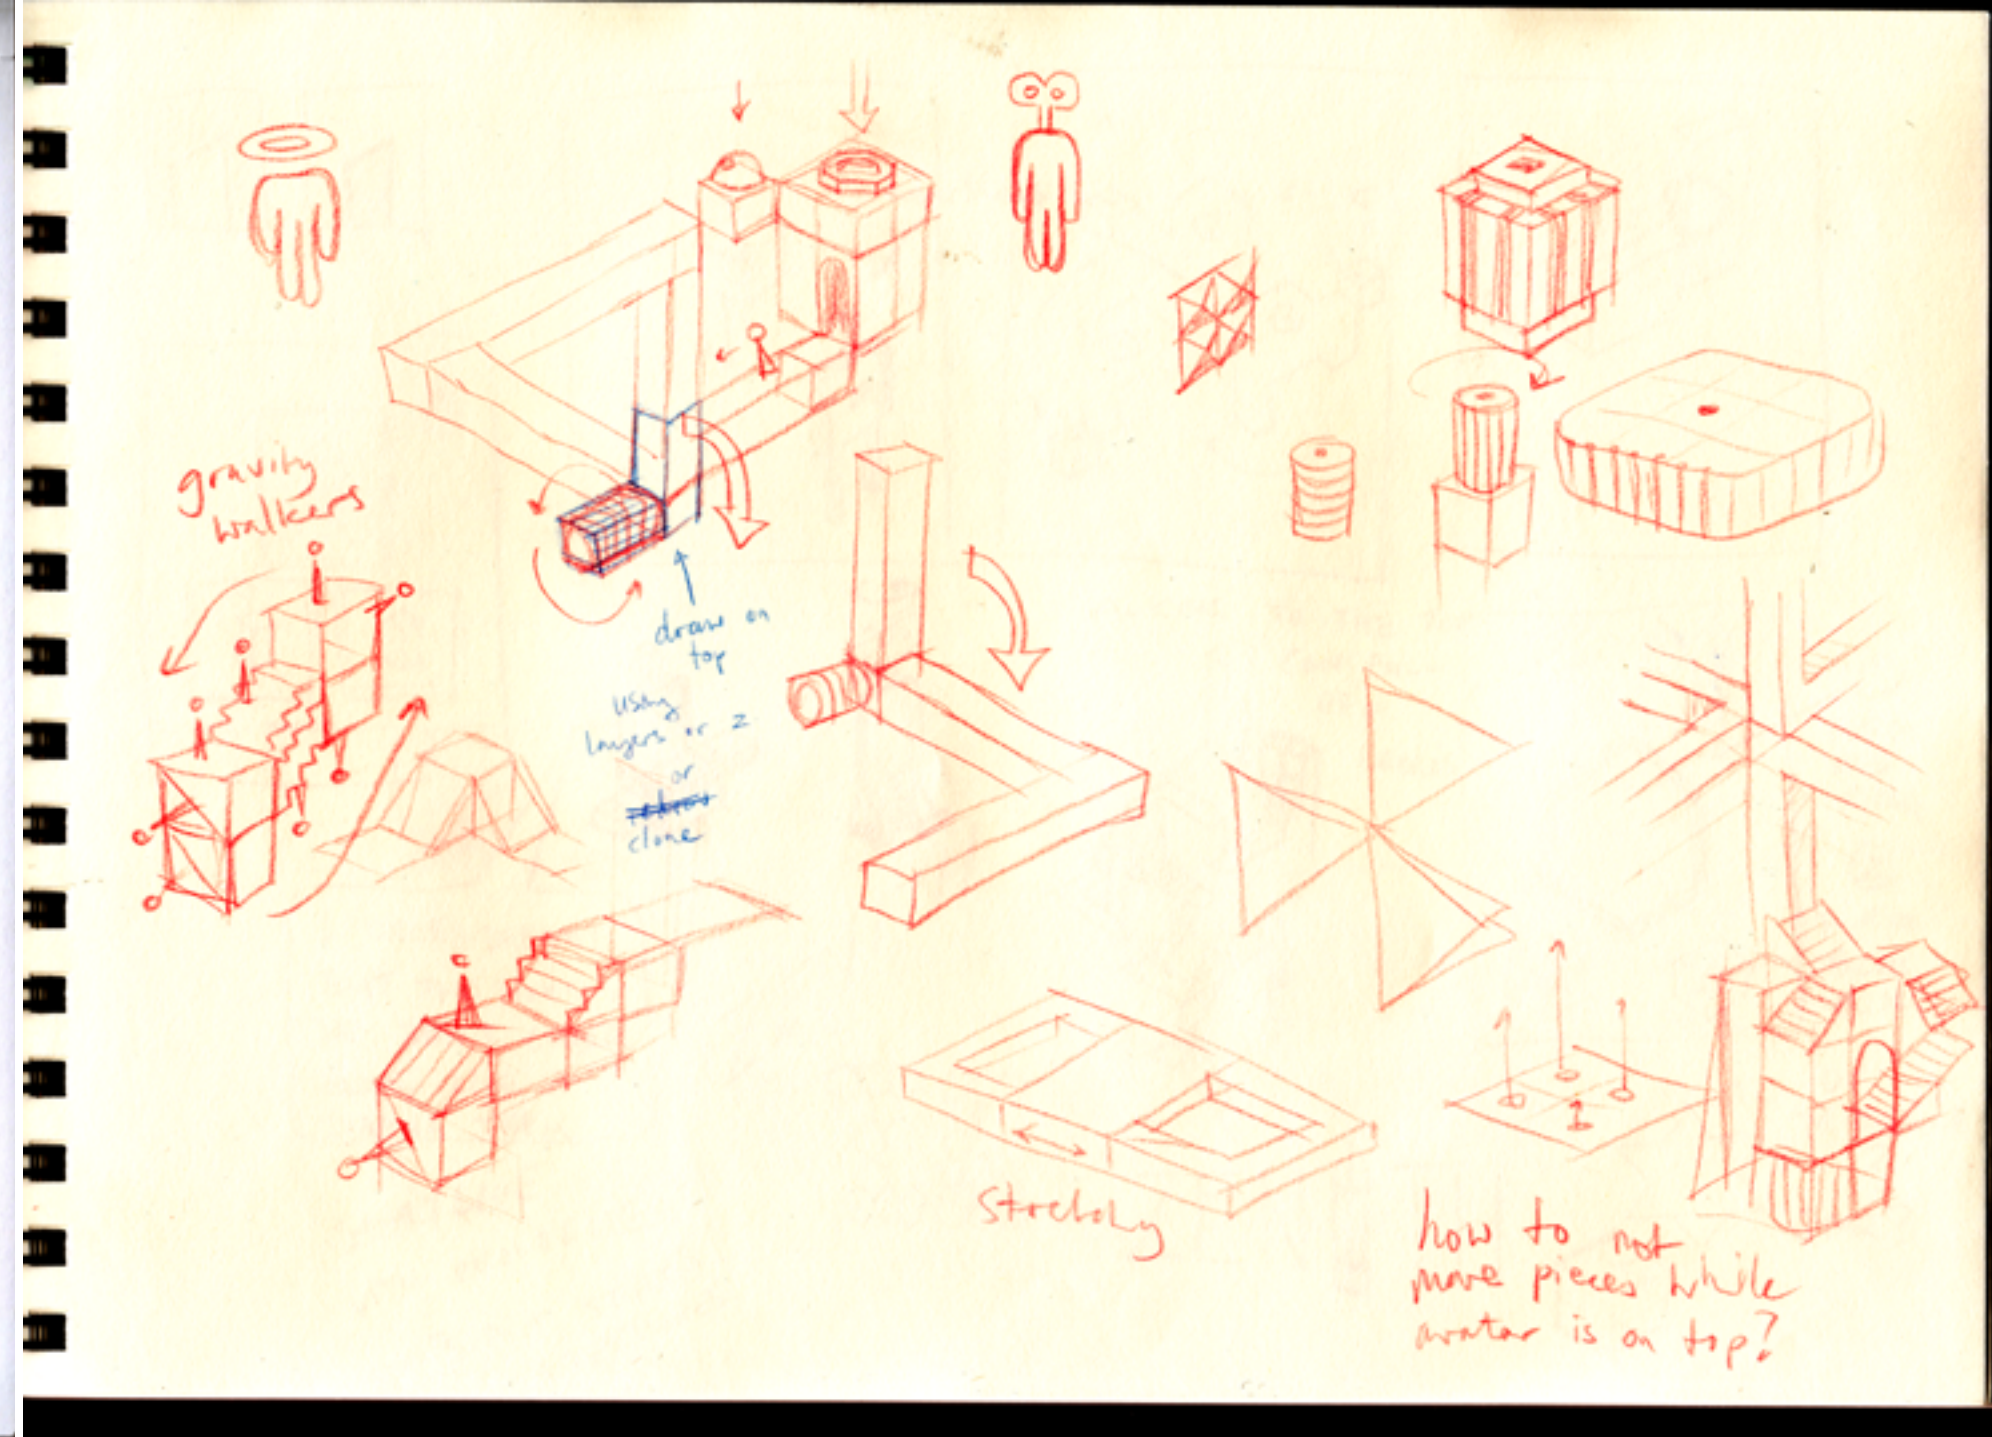 gravity
walkers
draw on
top
using
layers or z
or
clone
stretchy
how to not
move pieces while
avatar is on top?